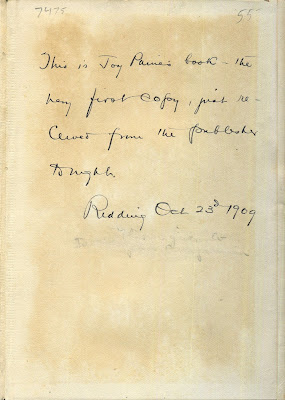 7475 55
This is Joy Paine's book – the
very first copy, just re-
ceived from the publisher
tonight.
Redding Oct 23d 1909